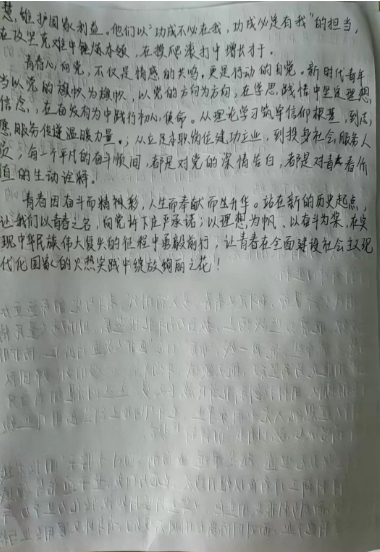 慧，维护国家利益。他们以“功成不必在我，功成必定有我”的担当，
在攻坚克难中锤炼本领，在摸爬滚打中增长才干。
青春心向党，不仅是情感的共鸣，更是行动的自觉。新时代青年
当以党的旗帜为旗帜，以党的方向为方向，在学思践悟中坚定理想
信念，在奋发有为中践行初心使命。从理论学习筑牢信仰根基，到志
愿服务传递温暖力量；从立足本职岗位建功立业，到投身社会服务人
民；每一个平凡的奋斗瞬间，都是对党的深情告白，都是对青春价
值的生动诠释。
青春因奋斗而精彩，人生因奉献而升华。站在新的历史起点，
让我们以青春之名，向党许下庄严承诺；以理想为帆，以奋斗为桨，在实
现中华民族伟大复兴的征程中勇毅前行，让青春在全面建设社会主义现
代化国家的火热实践中绽放绚丽之花！